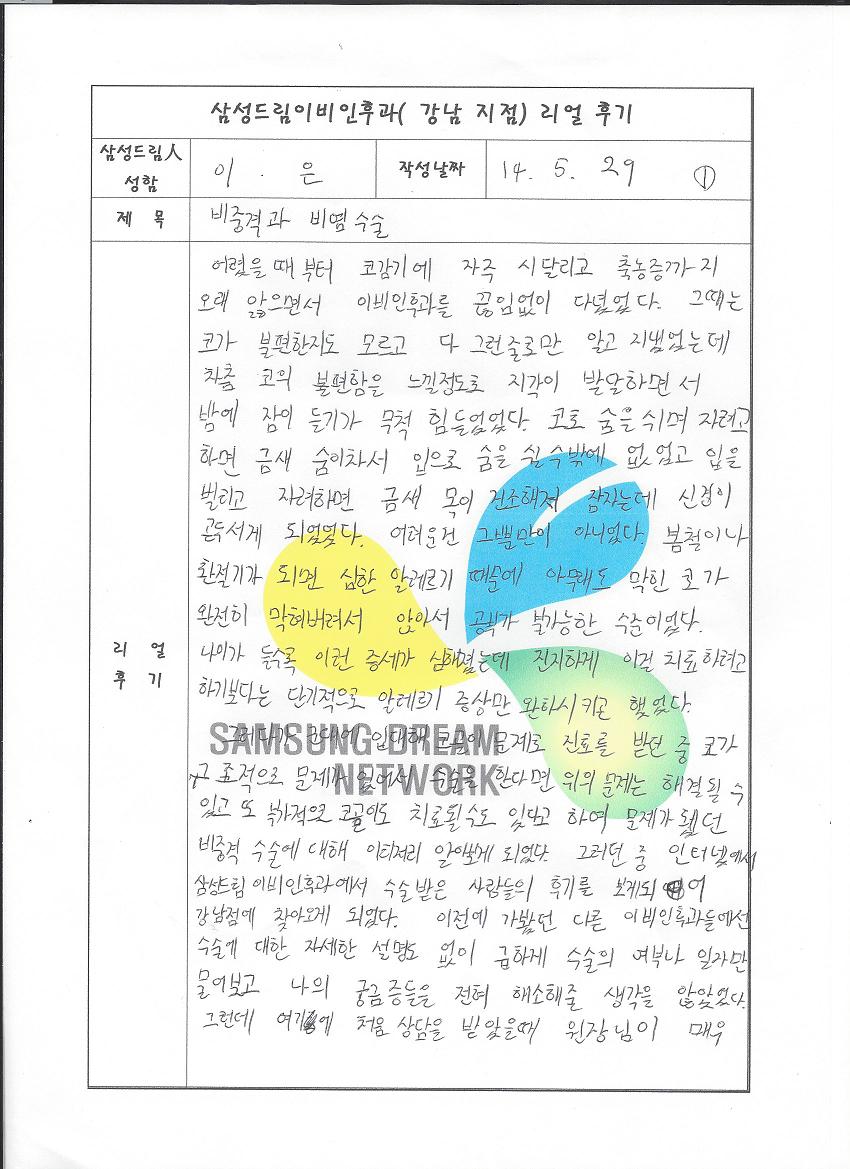 삼성드림이비인후과( 강남 지점) 리얼 후기
삼성드림人 성함
이 . 은
작성날짜
14. 5. 29 ①
제 목
비중격과 비염수술
리 얼 후 기
어렸을때부터 코감기에 자주 시달리고 축농증까지
오래 앓으면서 이비인후과를 끊임없이 다녔었다. 그때는
코가 불편한지도 모르고 다 그런줄로만 알고 지냈었는데
차츰 코의 불편함을 느낄정도로 지각이 발달하면서
밤에 잠이 들기가 무척 힘들었었다. 코로 숨을 쉬며 자려고
하면 금새 숨이차서 입으로 숨을 쉴수밖에 없었고 입을
벌리고 자려하면 금새 목이 건조해져 잠자는데 신경이
곤두서게 되었었다. 어려운건 그뿐만이 아니었다. 봄철이나
환절기가 되면 심한 알레르기 때문에 아무래도 막힌 코가
완전히 막혀버려서 앉아서 공부가 불가능한 수준이었다.
나이가 들수록 이런 증세가 심해졌는데 진지하게 이걸 치료하려고
하기보다는 단기적으로 알레르기 증상만 완화시키곤 했었다.
그러다가 군대에 입대해 코골이 문제로 진료를 받던 중 코가
구조적으로 문제가 있어서 수술을 한다면 위의 문제는 해결될 수
있고 또 부가적으로 코골이도 치료될수도 있다고 하여 문제가 됐던
비중격 수술에 대해 이리저리 알아보게 되었다. 그러던 중 인터넷에서
삼성드림이비인후과에서 수술받은 사람들의 후기를 보게되어
강남점에 찾아오게 되었다. 이전에 가봤던 다른 이비인후과들에선
수술에 대한 자세한 설명도 없이 급하게 수술의 여부나 일자만
물어보고 나의 궁금증들은 전혀 해소해줄 생각을 않았었다.
그런데 여기에 처음 상담을 받았을때 원장님이 매우
SAMSUNG DREAM
NETWORK